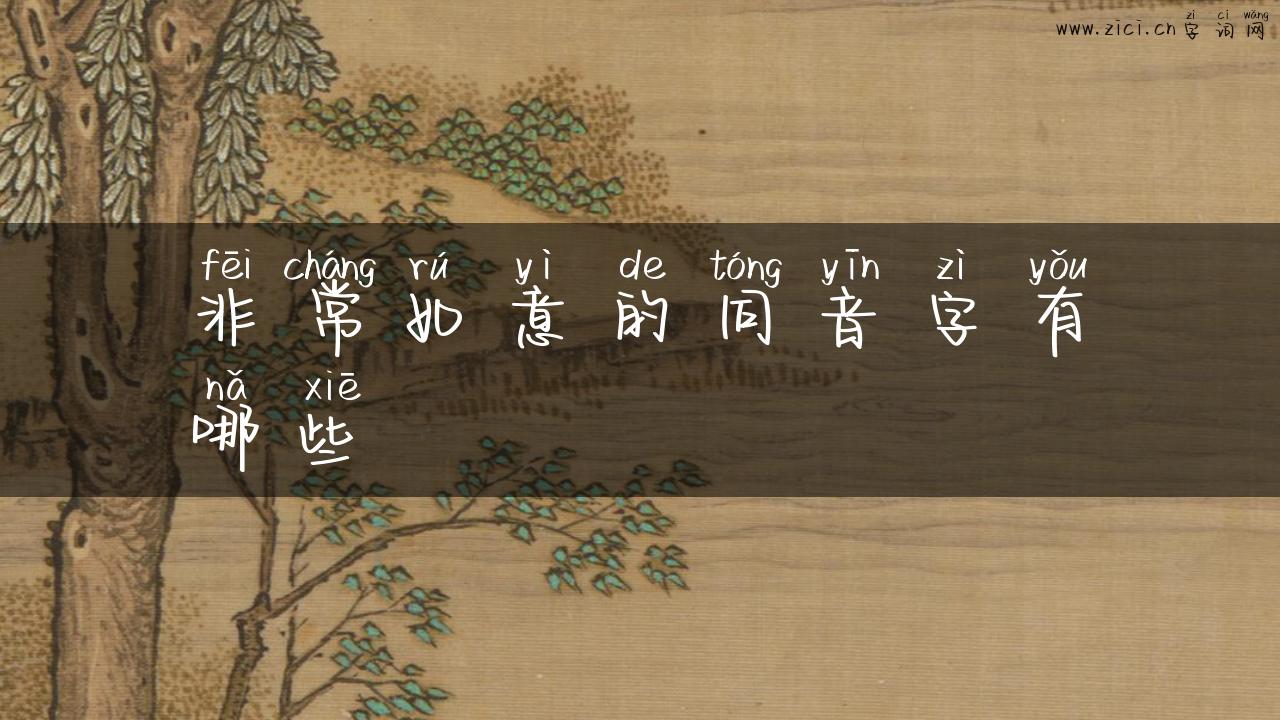 zì cí wǎng
www.zici.cn字词网
fēi cháng rú yì de tóng yīn zì yǒu
非常如意的同音字有
nǎ xiē
哪些